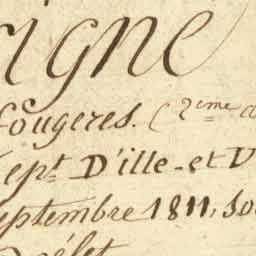 igne
fougeres. (2eme a
ept. D'ille-et V
eptembre 1811, so